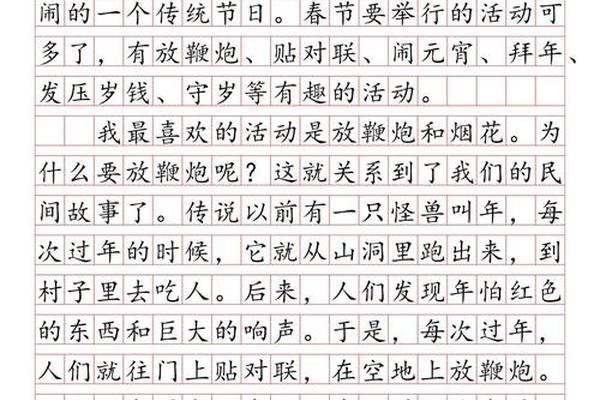 闹的一个传统节日。春节要举行的活动可
多了，有放鞭炮、贴对联、闹元宵、拜年、
发压岁钱、守岁等有趣的活动。
我最喜欢的活动是放鞭炮和烟花。为
什么要放鞭炮呢？这就关系到了我们的民
间故事了。传说以前有一只怪兽叫年，每
次过年的时候，它就从山洞里跑出来，到
村子里去吃人。后来，人们发现年怕红色
的东西和巨大的响声。于是，每次过年，
人们就往门上贴对联，在空地上放鞭炮。